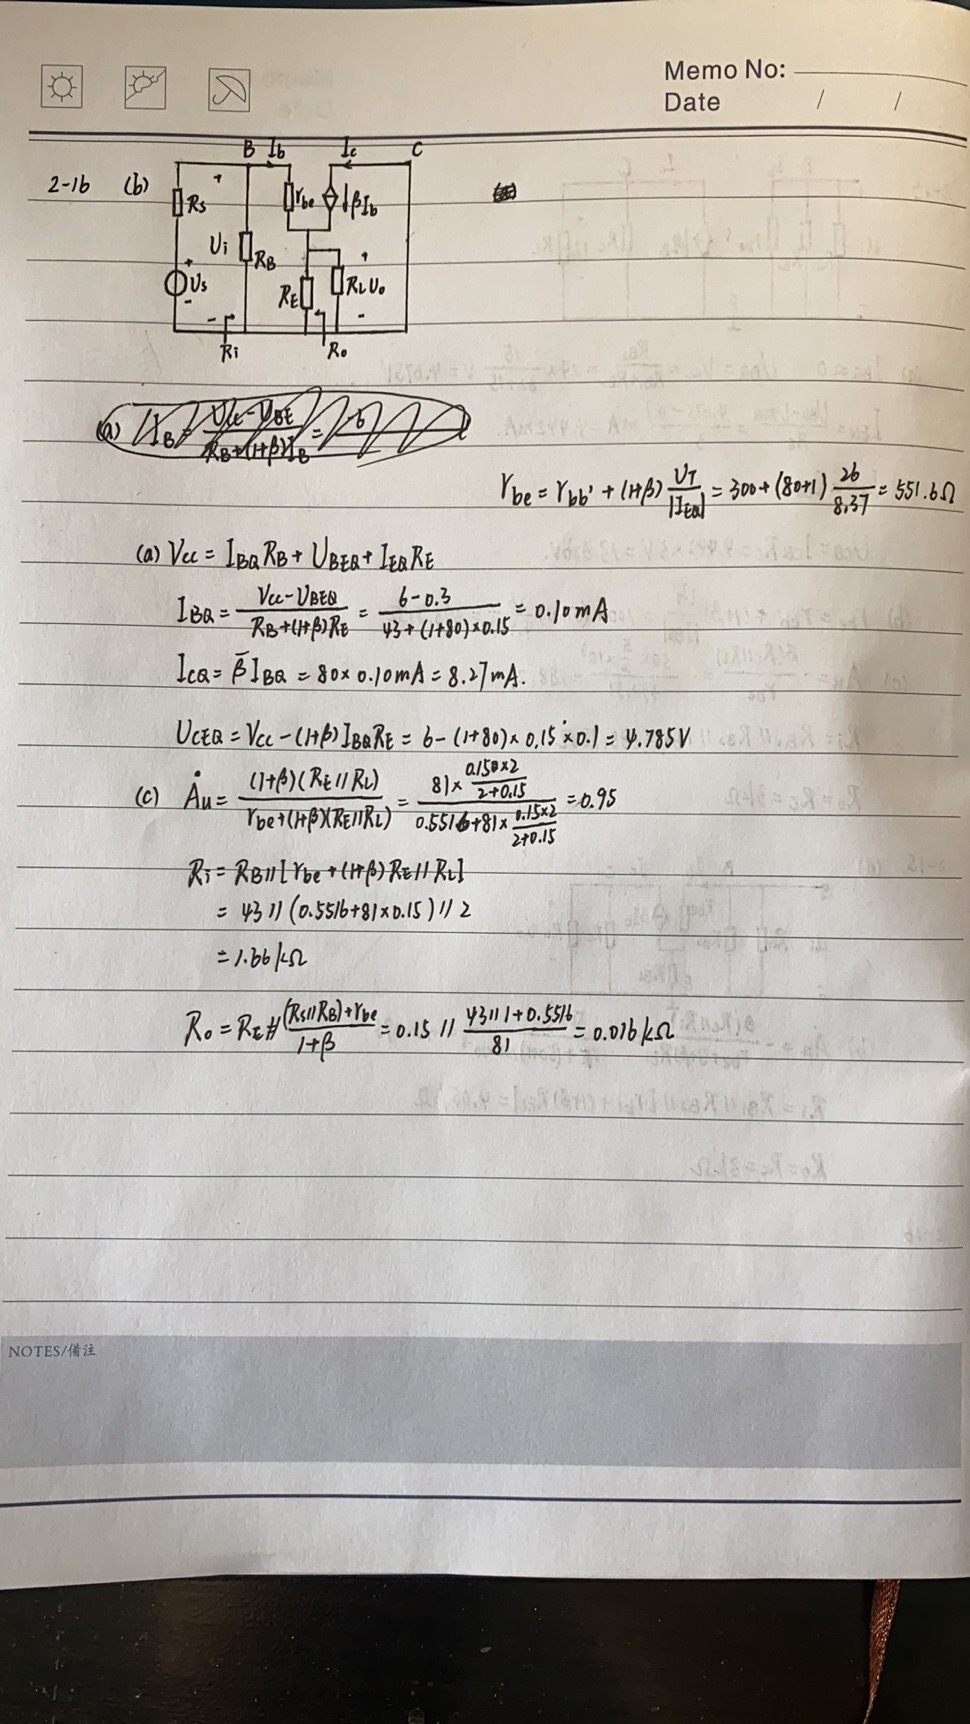 Memo No:
Date / /
2-16 (b)
B Ib Ic C
+
Rs rbe ↓βIb
Ui RB +
+ Us RE RL Uo
- - -
Ri Ro
rbe = rbb' + (1+β) UT/|IEQ| = 300 + (80+1) 26/8.37 = 551.6Ω
(a) Vcc = IBQ RB + UBEQ + IEQ RE
IBQ = (Vcc-UBEQ)/(RB+(1+β)RE) = (6-0.3)/(43+(1+80)×0.15) = 0.10mA
ICQ = β̄ IBQ = 80×0.10mA = 8.27mA.
UCEQ = Vcc-(1+β)IBQRE = 6-(1+80)×0.15×0.1 = 4.785V
(c)Ȧu = (1+β)(RE//RL)/(rbe+(1+β)(RE//RL)) = (81×(0.150×2)/(2+0.15))/(0.5516+81×(0.15×2)/(2+0.15)) = 0.95
Ri = RB//[rbe+(1+β)RE//RL]
= 43//(0.5516+81×0.15)//2
= 1.66kΩ
Ro = RE//((Rs//RB)+rbe)/(1+β) = 0.15//(43//1+0.5516)/81 = 0.016kΩ
NOTES/備注